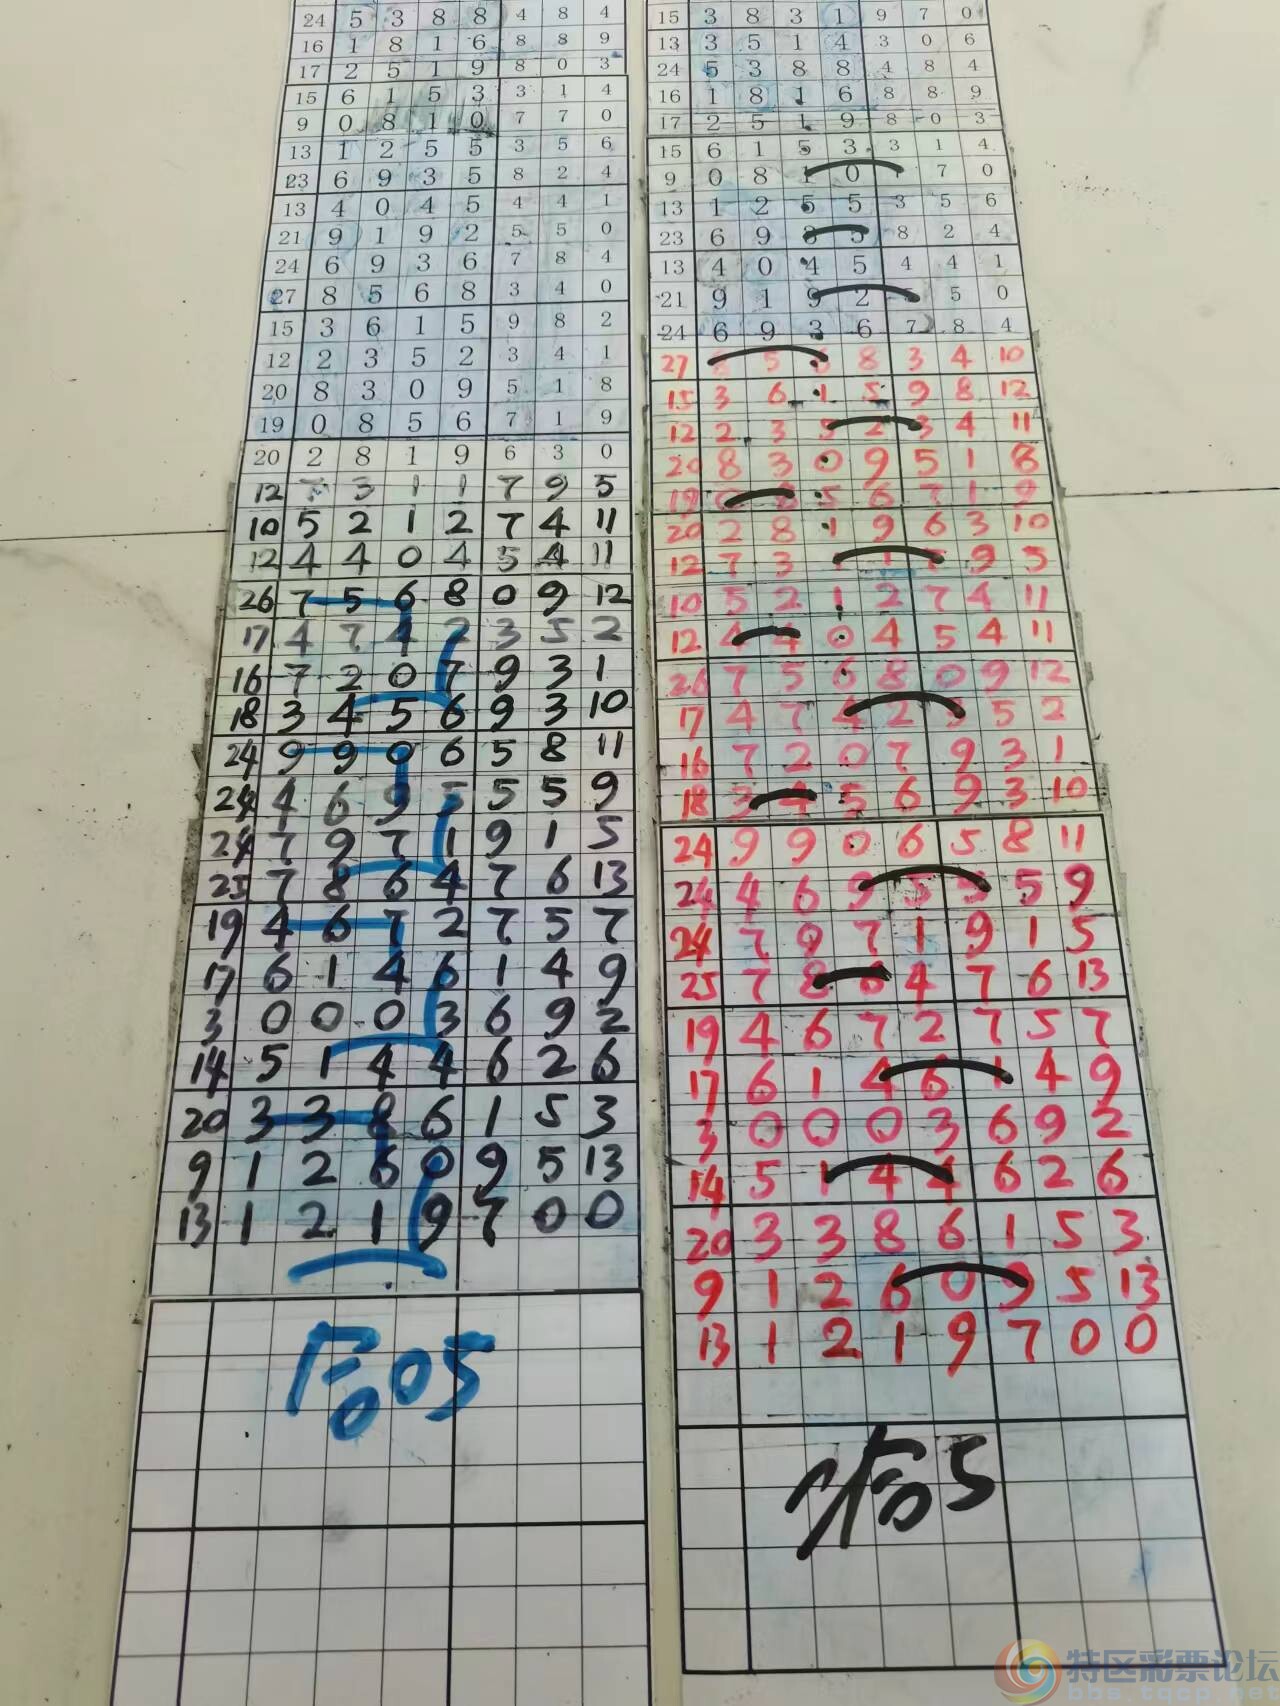 24 5 3 8 8 4 8 4
16 1 8 1 6 8 8 9
17 2 5 1 9 8 0 3
15 6 1 5 3 3 1 4
9 0 8 1 0 7 7 0
13 1 2 5 5 3 5 6
23 6 9 3 5 8 2 4
13 4 0 4 5 4 4 1
21 9 1 9 2 5 5 0
24 6 9 3 6 7 8 4
27 8 5 6 8 3 4 0
15 3 6 1 5 9 8 2
12 2 3 5 2 3 4 1
20 8 3 0 9 5 1 8
19 0 8 5 6 7 1 9
20 2 8 1 9 6 3 0
12 7 3 1 1 7 9 5
10 5 2 1 2 7 4 11
12 4 4 0 4 5 4 11
26 7 5 6 8 0 9 12
17 4 7 4 2 3 5 2
16 7 2 0 7 9 3 1
18 3 4 5 6 9 3 10
24 9 9 0 6 5 8 11
24 4 6 9 5 5 5 9
24 7 9 7 1 9 1 5
25 7 8 6 4 7 6 13
19 4 6 7 2 7 5 7
17 6 1 4 6 1 4 9
3 0 0 0 3 6 9 2
14 5 1 4 4 6 2 6
20 3 3 8 6 1 5 3
9 1 2 6 0 9 5 13
13 1 2 1 9 7 0 0
05
15 3 8 3 1 9 7 0
13 3 5 1 4 3 0 6
24 5 3 8 8 4 8 4
16 1 8 1 6 8 8 9
17 2 5 1 9 8 0 3
15 6 1 5 3 3 1 4
9 0 8 1 0 7 0
13 1 2 5 5 3 5 6
23 6 9 3 5 8 2 4
13 4 0 4 5 4 4 1
21 9 1 9 2 5 0
24 6 9 3 6 7 8 4
27 8 5 6 8 3 4 10
15 3 6 1 5 9 8 12
12 2 3 5 2 3 4 11
20 8 3 0 9 5 1 8
19 0 8 5 6 7 1 9
20 2 8 1 9 6 3 10
12 7 3 1 1 7 9 5
10 5 2 1 2 7 4 11
12 4 4 0 4 5 4 11
26 7 5 6 8 0 9 12
17 4 7 4 2 3 5 2
16 7 2 0 7 9 3 1
18 3 4 5 6 9 3 10
24 9 9 0 6 5 8 11
24 4 6 9 5 5 5 9
24 7 9 7 1 9 1 5
25 7 8 6 4 7 6 13
19 4 6 7 2 7 5 7
17 6 1 4 6 1 4 9
3 0 0 0 3 6 9 2
14 5 1 4 4 6 2 6
20 3 3 8 6 1 5 3
9 1 2 6 0 9 5 13
13 1 2 1 9 7 0 0
5
特区彩票论坛
bbs.tqcp.net